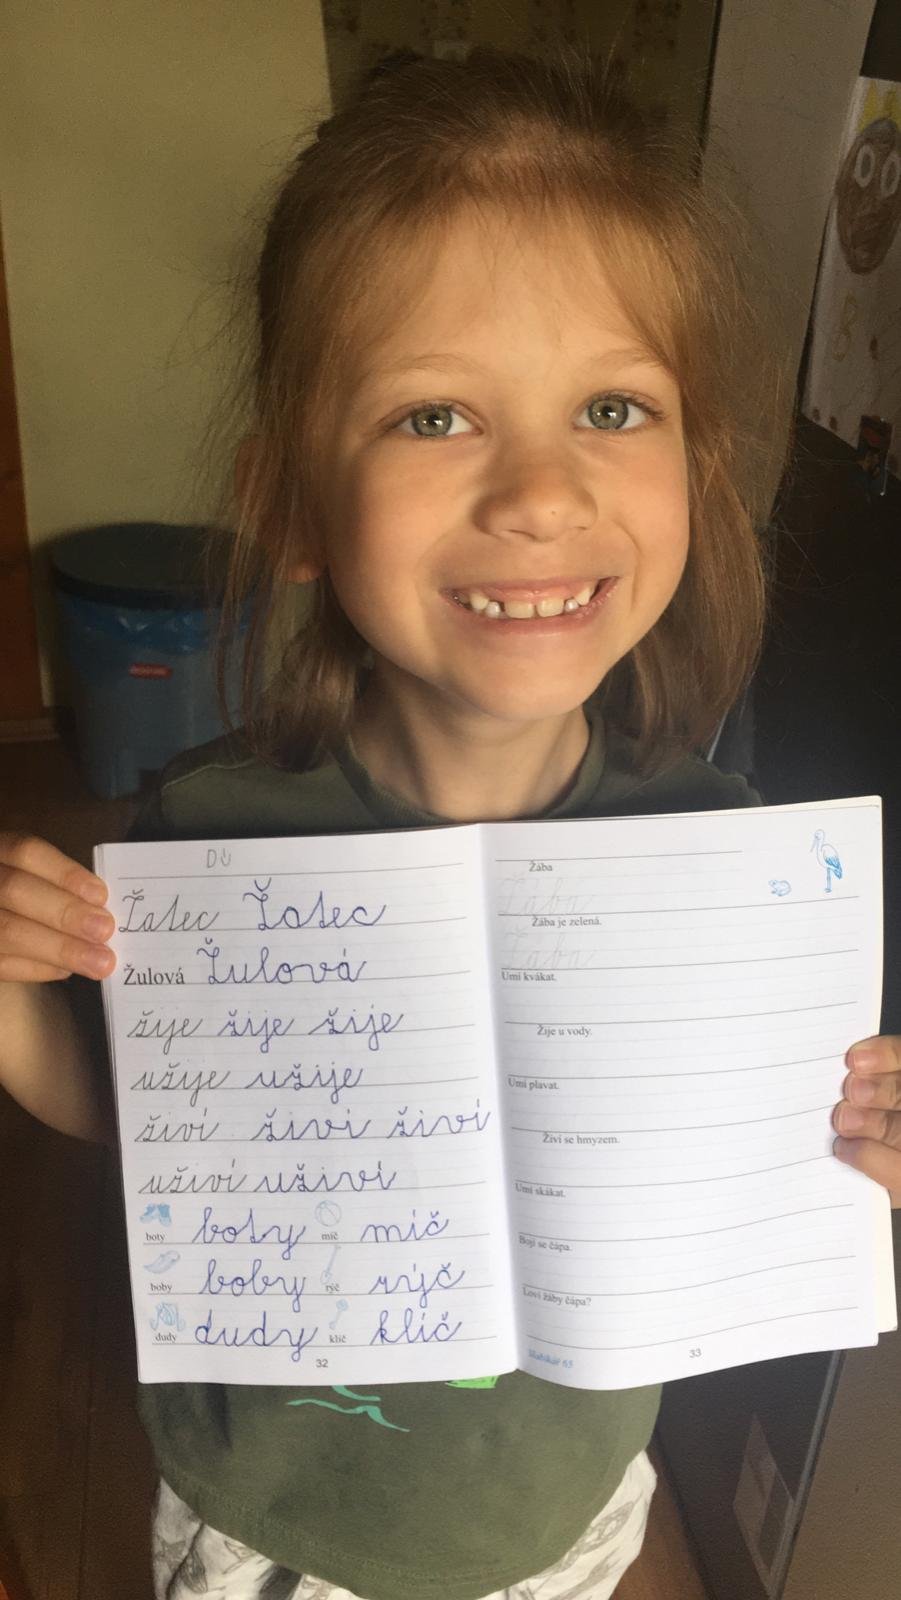 DÚ
Žatec Žatec
Žulová Žulová
žije žije žije
užije užije
živí živí živí
uživí uživí
boty boty míč míč
boby boby rýč rýč
dudy dudy klíč klíč
32
Žába
Žába
Žába je zelená.
Žába
Umí kvákat.
Žije u vody.
Umí plavat.
Živí se hmyzem.
Umí skákat.
Bojí se čápa.
Loví žáby čápa?
Slabikář 65
33
B